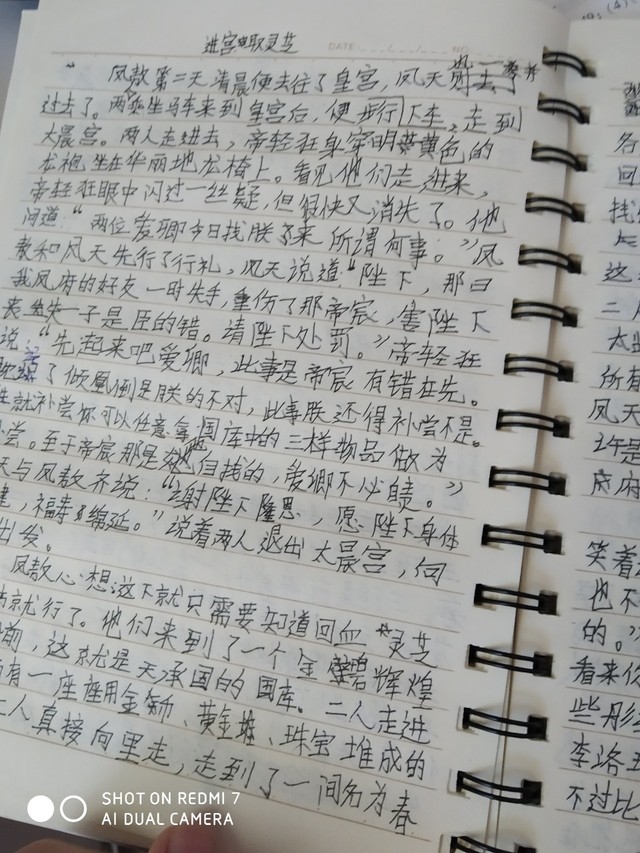 进宫取灵芝
DATE
NO
凤敖第二天清晨便去往了皇宫,凤天
过去了。两乘坐马车来到皇宫后,便步行下车,走到
太晨宫。两人走进去,帝轻狂身穿明黄色的
龙袍坐在华丽地龙椅上。看见他们走进来,
帝轻狂眼中闪过一丝疑,但很快又消失了。他
问道:“两位爱卿今日找朕了来所谓何事。”凤
敖和凤天先行了行礼,凤天说道“陛下,那日
我凤府的好友一时失手,重伤了那帝宸,害陛下
丧失一子是臣的错。请陛下处罚。”帝轻狂
说“先起来吧爱卿,此事是帝宸有错在先。
了倾凰倒是朕的不对,此事朕还得补尝不是。
就补尝你可以任意拿国库中的三样物品做为
尝。至于帝宸那是他自找的,爱卿不必自责。”
天与凤敖齐说:“谢陛下隆恩,愿陛下身体
健,福寿绵延。”说着两人退出太晨宫,向
出发。
凤敖心想这下就只需要知道回血灵芝
就行了。他们来到了一个金碧辉煌
前,这就是天承国的国库。二人走进
有一座座用金币、黄金堆、珠宝堆成的
二人直接向里走,走到了一间名为春
各
回
找
这
二
太
所
凤天
府
笑着
也不
的。”
看来
些彤
李洛
不过比
SHOT ON REDMI 7
AI DUAL CAMERA